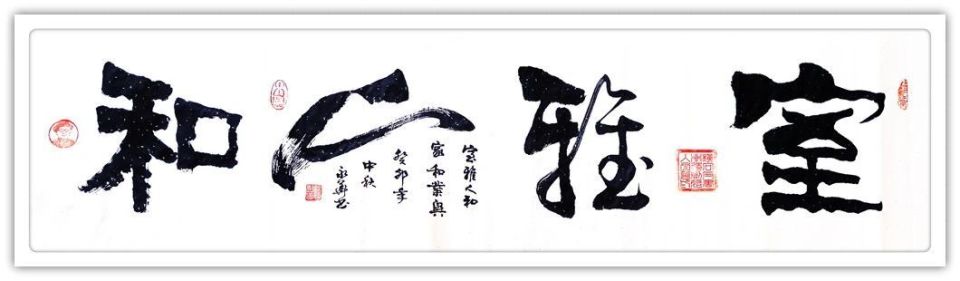 室雅人和
室雅人和
家和業興
癸卯年
中秋